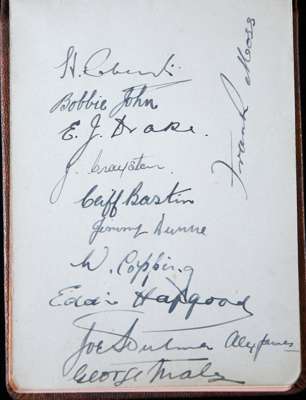 Frank Moss
Bobbie John
E. J. Drake.
J. Crayston.
Cliff Bastin
Jimmy Dunne
W. Copping
Eddie Hapgood
Joe Hulme Alex James
George Male